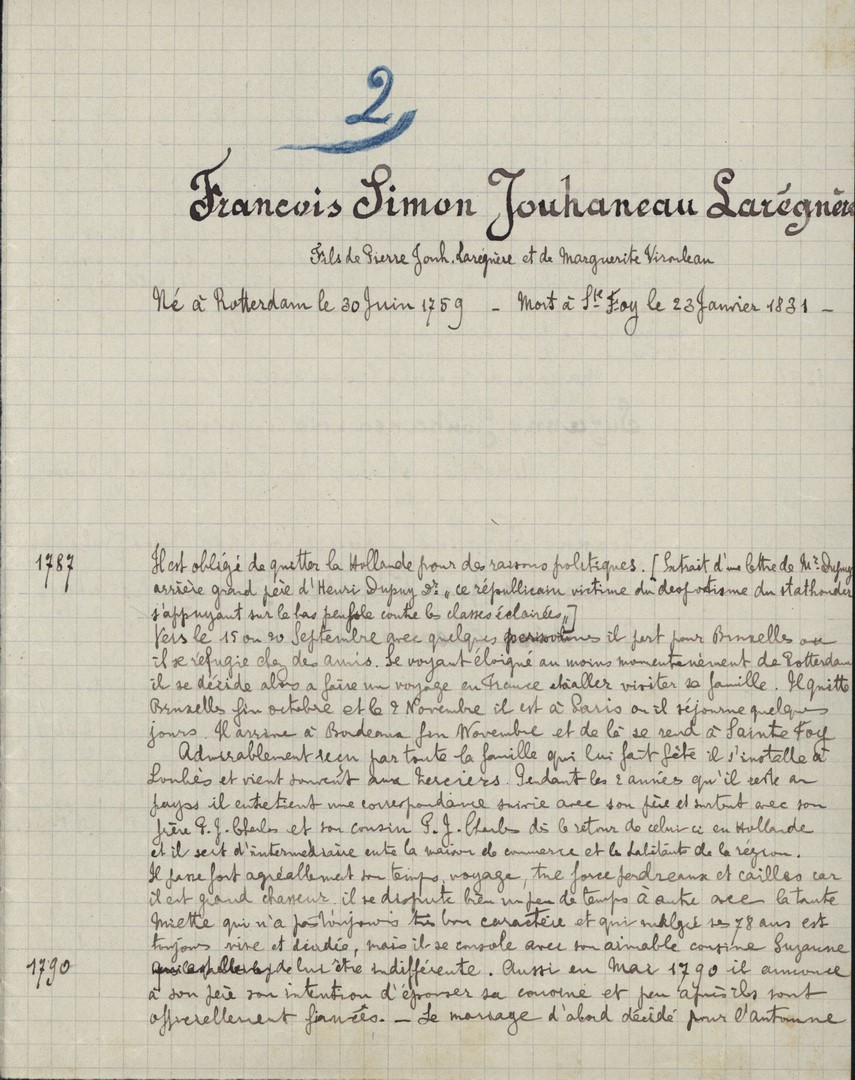 2
Francois Simon Jouhaneau Laregnère
Fils de Pierre Jouh. Laregnère et de Marguerite Virouleau
Né à Rotterdam le 30 Juin 1759 - Mort à Ste Foy le 23 Janvier 1831 -
1787 Il est obligé de quitter la Hollande pour des raisons politiques. [Extrait d'une lettre de Mr. Dupuy
arrière grand père d'Henri Dupuy Dr. „ ce républicain victime du despotisme du stathouder
s'appuyant sur le bas peuple contre les classes éclairées „]
Vers le 15 ou 20 Septembre avec quelques personnes il part pour Bruxelles ou
il se réfugie chez des amis. Se voyant éloigné au moins momentanément de Rotterdam
il se décide alors a faire un voyage en France et aller visiter sa famille. Il quitte
Bruxelles fin octobre et le 2 Novembre il est à Paris ou il séjourne quelques
jours. Il arrive à Bordeaux fin Novembre et de là se rend à Sainte Foy
Admirablement reçu par toute la famille qui lui fait fête il s'installe à
Louhès et vient souvent aux Merciers. Pendant les 2 années qu'il reste au
pays il entretient une correspondance suivie avec son père et surtout avec son
frère P. J. Charles et son cousin P. J. Charles dès le retour de celui ci en Hollande
et il sert d'intermédiaire entre la maison de commerce et les habitants de la région.
Il passe fort agréablement son temps, voyage, tue force perdreaux et cailles car
il est grand chasseur, il se dispute bien un peu de temps à autre avec la tante
Miette qui n'a pas toujours très bon caractère et qui malgré ses 78 ans est
toujours vive et décidée, mais il se console avec son aimable cousine Suzanne
1790 de lui être indifférente. Aussi en Mai 1790 il annonce
à son père son intention d'épouser sa cousine et peu après ils sont
officiellement fiancés. - Le mariage d'abord décidé pour l'automne